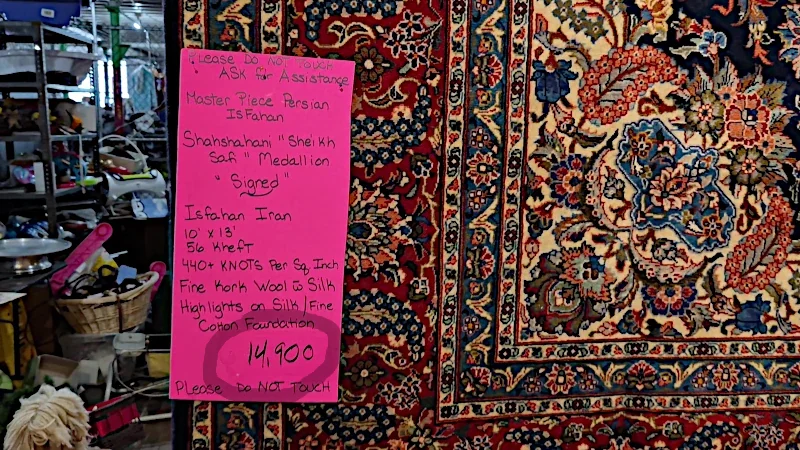 Please Do NOT TOUCH
ASK for Assistance
Master Piece Persian
Isfahan
Shahshahani "Sheikh
Safi" Medallion
"Signed"
Isfahan Iran
10' x 13'
56 Kheft
440+ KNOTS Per Sq Inch
Fine Kork Wool & Silk
Highlights on Silk/Fine
Cotton Foundation
14,900
Please Do NOT TOUCH